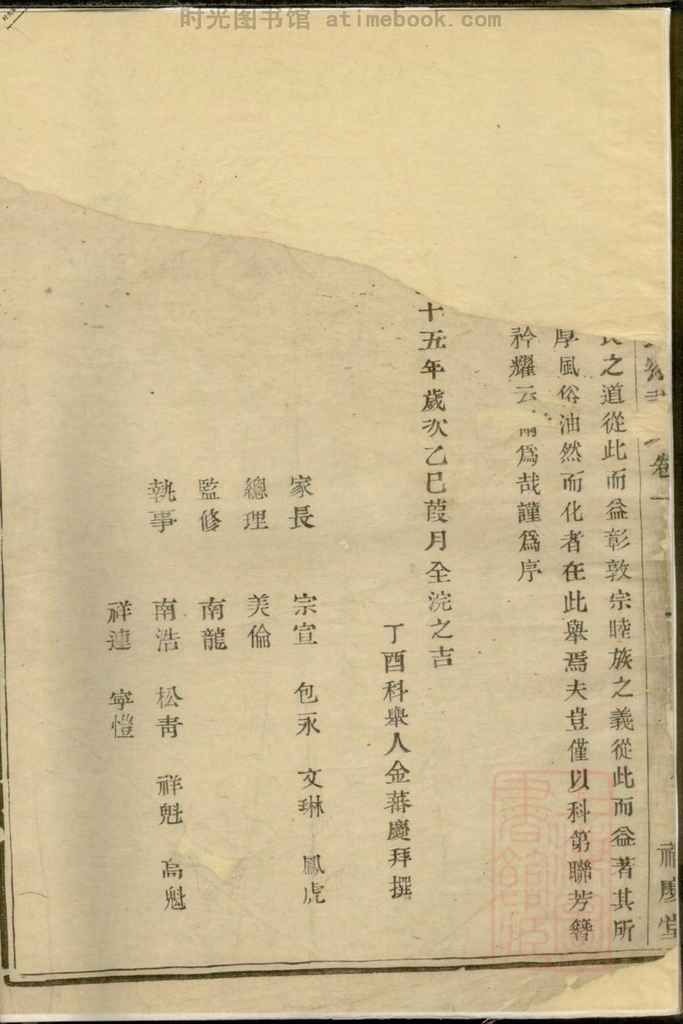 时光图书馆 atimebook.com
卷一
之道從此而益彰敦宗睦族之義從此而益著其所
厚風俗油然而化者在此舉焉夫豈僅以科第聯芳簪
矜耀云爲哉謹爲序
十五年歲次乙巳葭月全浣之吉
丁酉科舉人金蕃慶拜撰
家長 宗宣 包永 文琳 鳳虎
總理 美倫
監修 南龍
執事 南浩 松靑 祥魁 高魁
祥連 寧愷